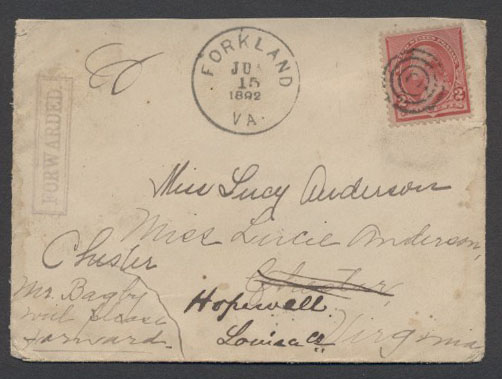 FORKLAND
15
1892
VA.
FORWARDED.
2 2
Miss Lucy Anderson
Miss Lucie Anderson,
Chester
Chester,
Mr. Bagby
will please
forward.
Hopewell
Louisa Co
Virginia